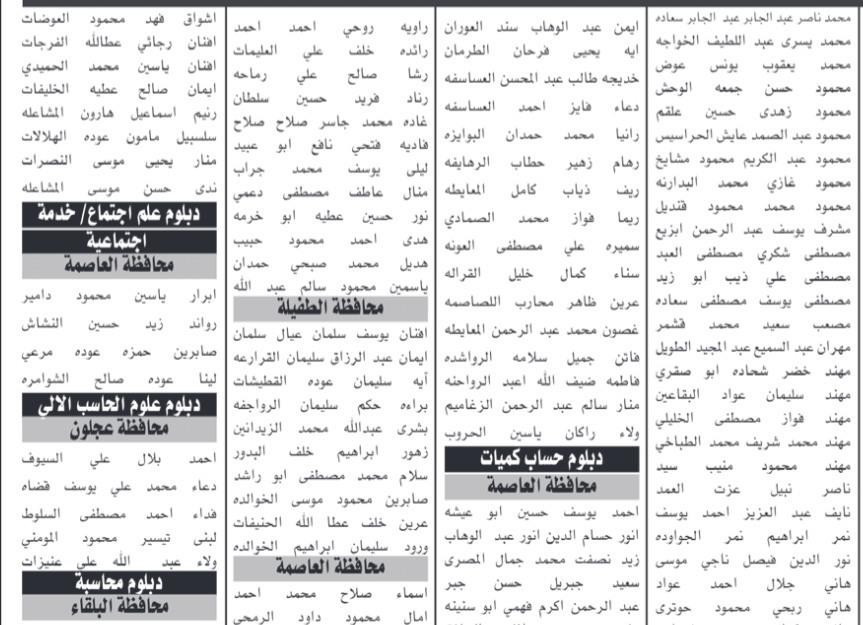 محمد ناصر عبد الجابر عبد الجابر سعاده
محمد يسرى عبد اللطيف الخواجه
محمد يعقوب يونس عوض
محمود حسن جمعه الوحش
محمود زهدى حسين علقم
محمود عبد الصمد عايش الحراسيس
محمود عبد الكريم محمود مشايخ
محمود غازي محمد البدارنه
محمود محمد محمود قنديل
مشرف يوسف عبد الرحمن ابزيع
مصطفى شكري مصطفى العبد
مصطفى علي ذيب ابو زيد
مصطفى يوسف مصطفى سعاده
مصعب سعيد محمد قشمر
مهران عبد السميع عبد المجيد الطويل
مهند خضر شحاده ابو صقري
مهند سليمان عواد البقاعين
مهند فواز مصطفى الخليلي
مهند محمد شريف محمد الطباخي
مهند محمود منيب سيد
ناصر نبيل عزت العمد
نايف عبد العزيز احمد يوسف
نمر ابراهيم نمر الجواوده
نور الدين فيصل ناجي موسى
هاني جلال احمد عواد
هاني ربحي محمود حوتري
ايمن عبد الوهاب سند العوران
ايه يحيى فرحان الطرمان
خديجه طالب عبد المحسن العساسفه
دعاء فايز احمد العساسفه
رانيا محمد حمدان البوايزه
رهام زهير حطاب الرهايفه
ريف ذياب كامل المعايطه
ريما فواز محمد الصمادي
سميره علي مصطفى العونه
سناء كمال خليل القراله
عرين ظاهر محارب اللصاصمه
غصون محمد عبد الرحمن المعايطه
فاتن جميل سلامه الرواشده
فاطمه ضيف الله اعبد الرواحنه
منار سالم عبد الرحمن الزغاميم
ولاء راكان ياسين الحروب
دبلوم حساب كميات
محافظة العاصمة
احمد يوسف حسين ابو عيشه
انور حسام الدين انور عبد الوهاب
زيد نصفت محمد جمال المصرى
سعيد جبريل حسن جبر
عبد الرحمن اكرم فهمي ابو سنينه
راويه روحي احمد احمد
رائده خلف علي العليمات
رشا صالح علي رماحه
رناد فريد حسين سلطان
غاده محمد جاسر صلاح صلاح
فاديه فتحي نافع ابو عبيد
ليلى يوسف محمد جراب
منال عاطف مصطفى دعمي
نور حسين عطيه ابو خرمه
هدى احمد محمود حبيب
هديل محمد صبحي حمدان
ياسمين محمود سالم عبد الله
محافظة الطفيلة
افنان يوسف سلمان عيال سلمان
ايمان عبد الرزاق سليمان القرارعه
أيه سليمان عوده القطيشات
براءه حكم سليمان الرواجفه
بشرى عبدالله محمد الزيدانين
زهور ابراهيم خلف البدور
سلام محمد مصطفى ابو راشد
صابرين محمود موسى الخوالده
عرين خلف عطا الله الحنيفات
ورود سليمان ابراهيم الخوالده
محافظة العاصمة
اسماء صلاح محمد احمد
امال محمود داود الرمحي
اشواق فهد محمود العوضات
افنان رجائي عطالله الفرجات
افنان ياسين محمد الحميدي
ايمان صالح عطيه الخليفات
رنيم اسماعيل هارون المشاعله
سلسبيل مامون عوده الهلالات
منار يحيى موسى النصرات
ندى حسن موسى المشاعله
دبلوم علم اجتماع/ خدمة
اجتماعية
محافظة العاصمة
ابرار ياسين محمود دامير
رواند زيد حسين النشاش
صابرين حمزه عوده مرعي
لينا عوده صالح الشوامره
دبلوم علوم الحاسب الالي
محافظة عجلون
احمد بلال علي السيوف
دعاء محمد علي يوسف قضاه
فداء احمد مصطفى السلوط
لبنى تيسير محمود المومني
ولاء عبد الله علي عنيزات
دبلوم محاسبة
محافظة البلقاء